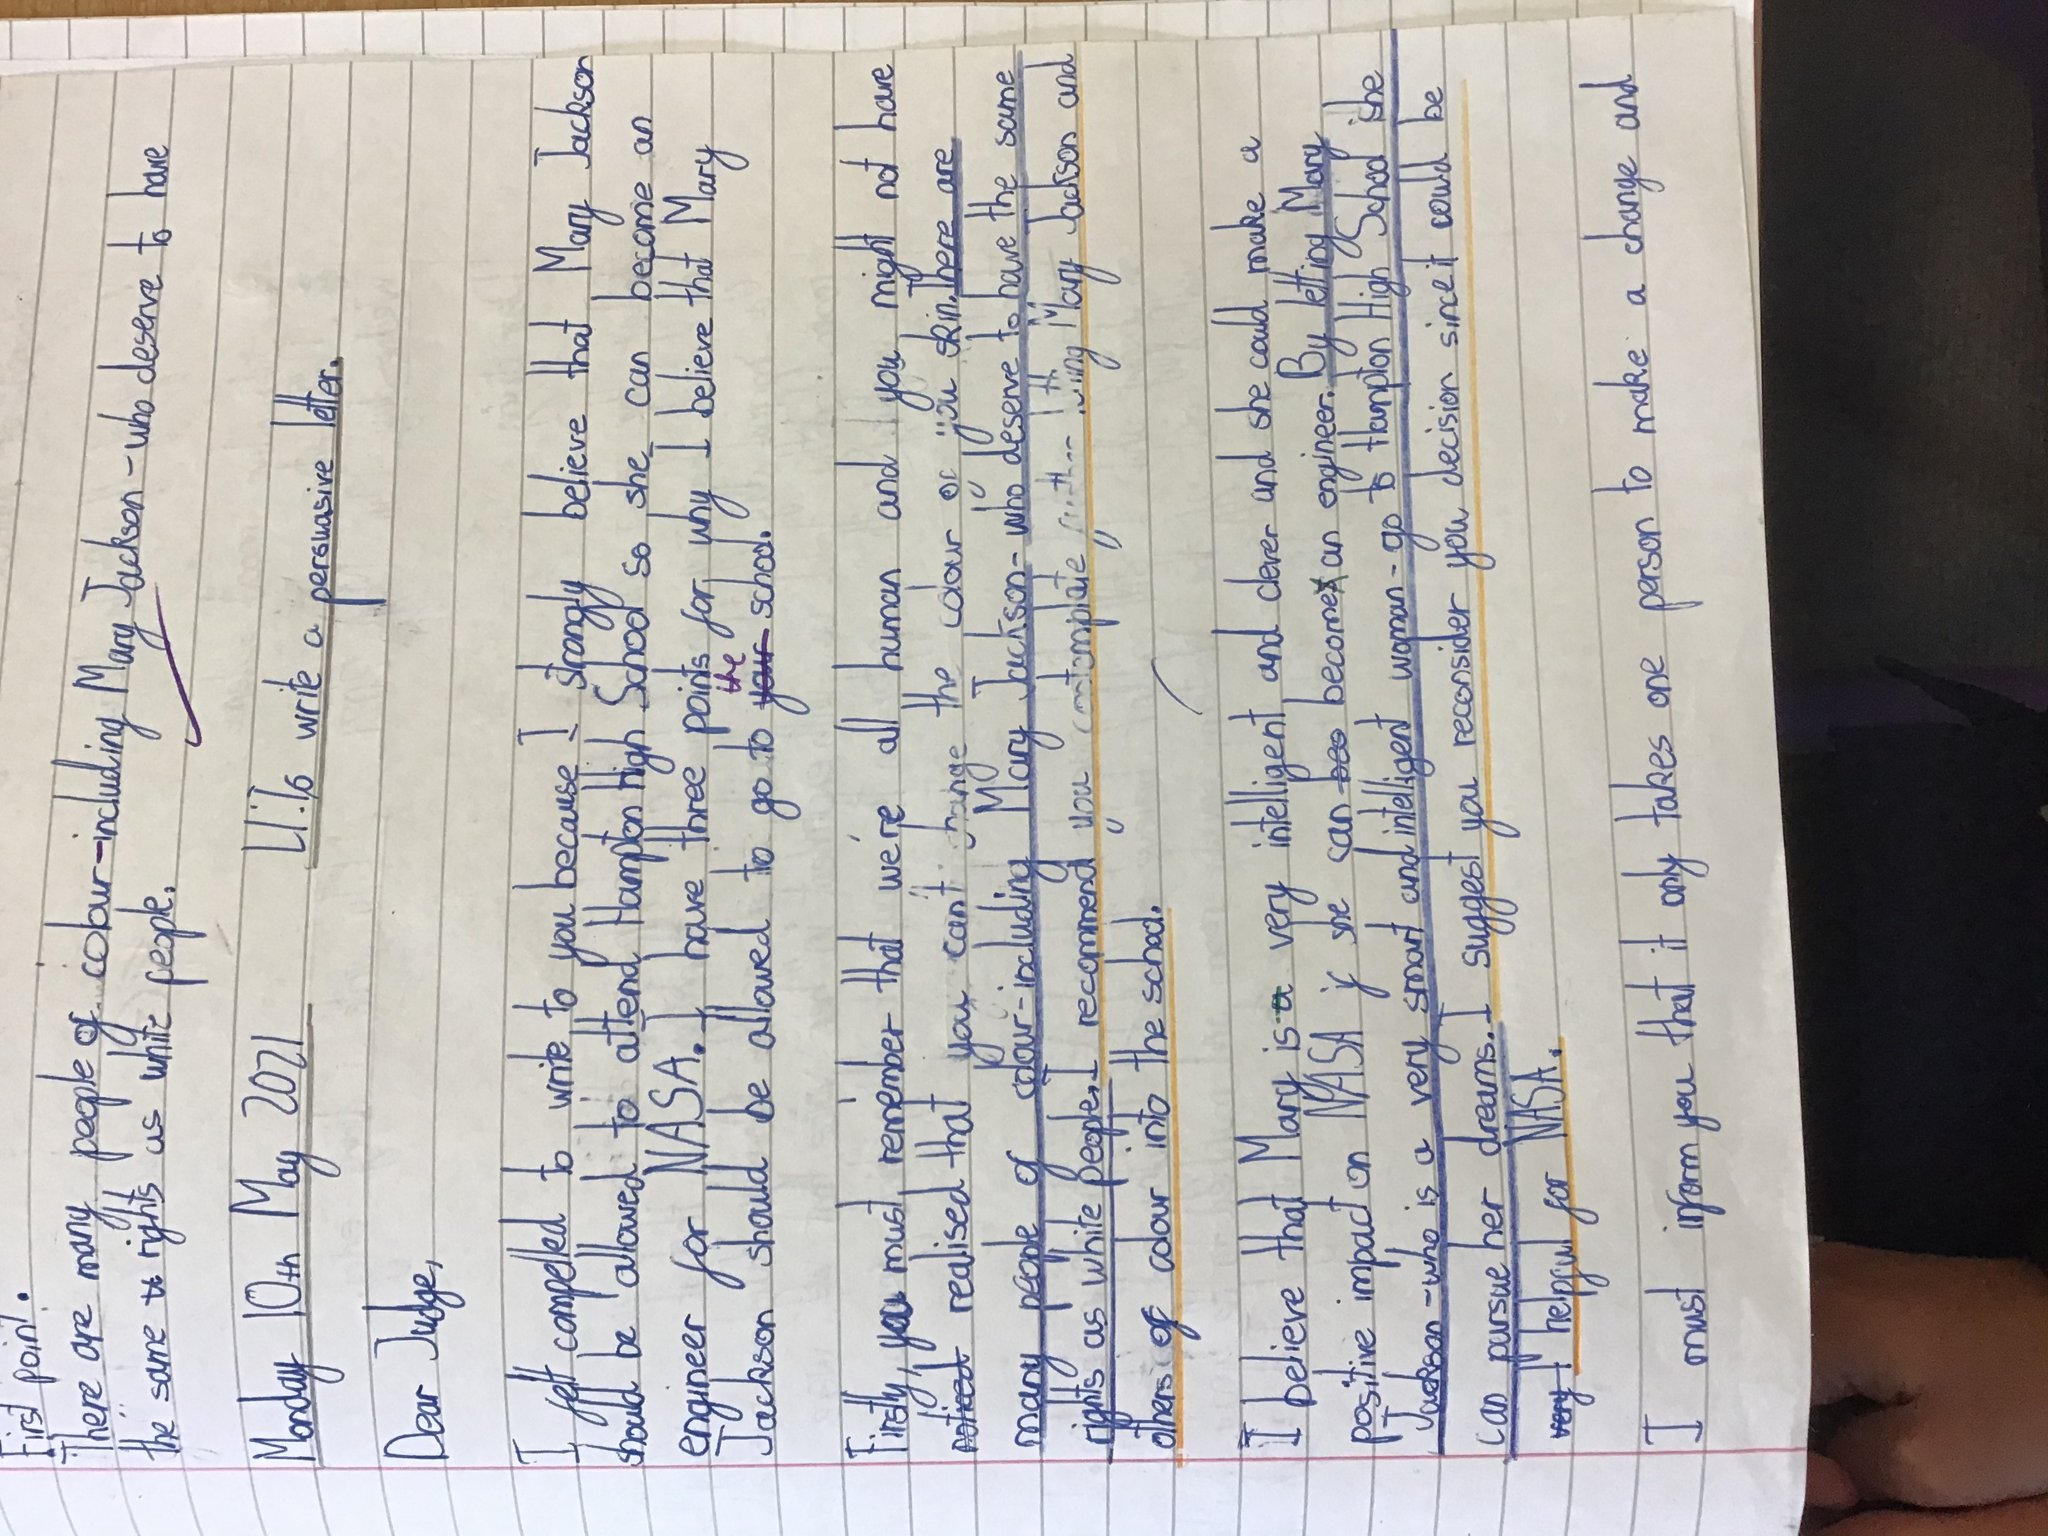 First point.
There are many people of colour-including Mary Jackson-who deserve to have
the same rights as white people.
Monday 10th May 2021 LI:To write a persuasive letter.
Dear Judge,
I felt compelled to write to you because I strongly believe that Mary Jackson
should be allowed to attend Hampton High School so she can become an
engineer for NASA. I have three points for why I believe that Mary
Jackson should be allowed to go to your the school.
Firstly, you must remember that we're all human and you might not have
noticed realised that you can't change the colour of you skin. There are
many people of colour-including Mary Jackson- who deserve to have the same
rights as white people. I recommend you contemplate further letting Mary Jackson and
others of colour into the school.
I believe that Mary is a very intelligent and clever and she could make a
positive impact on NASA if she can beo become an engineer. By letting Mary
Jackson-who is a very smart and intelligent woman-go to Hampton High School she
can pursue her dreams. I suggest you reconsider you decision since it could be
very helpful for NASA.
I must inform you that it only takes one person to make a change and